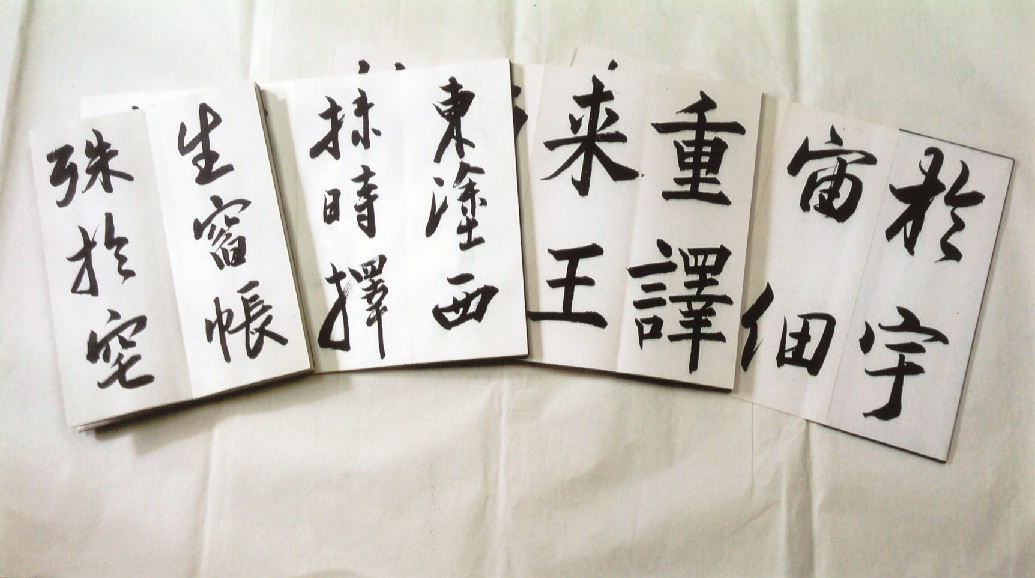 於宇
宙細
重譯
来王
東塗西
抹時擇
生窗帳
殊於